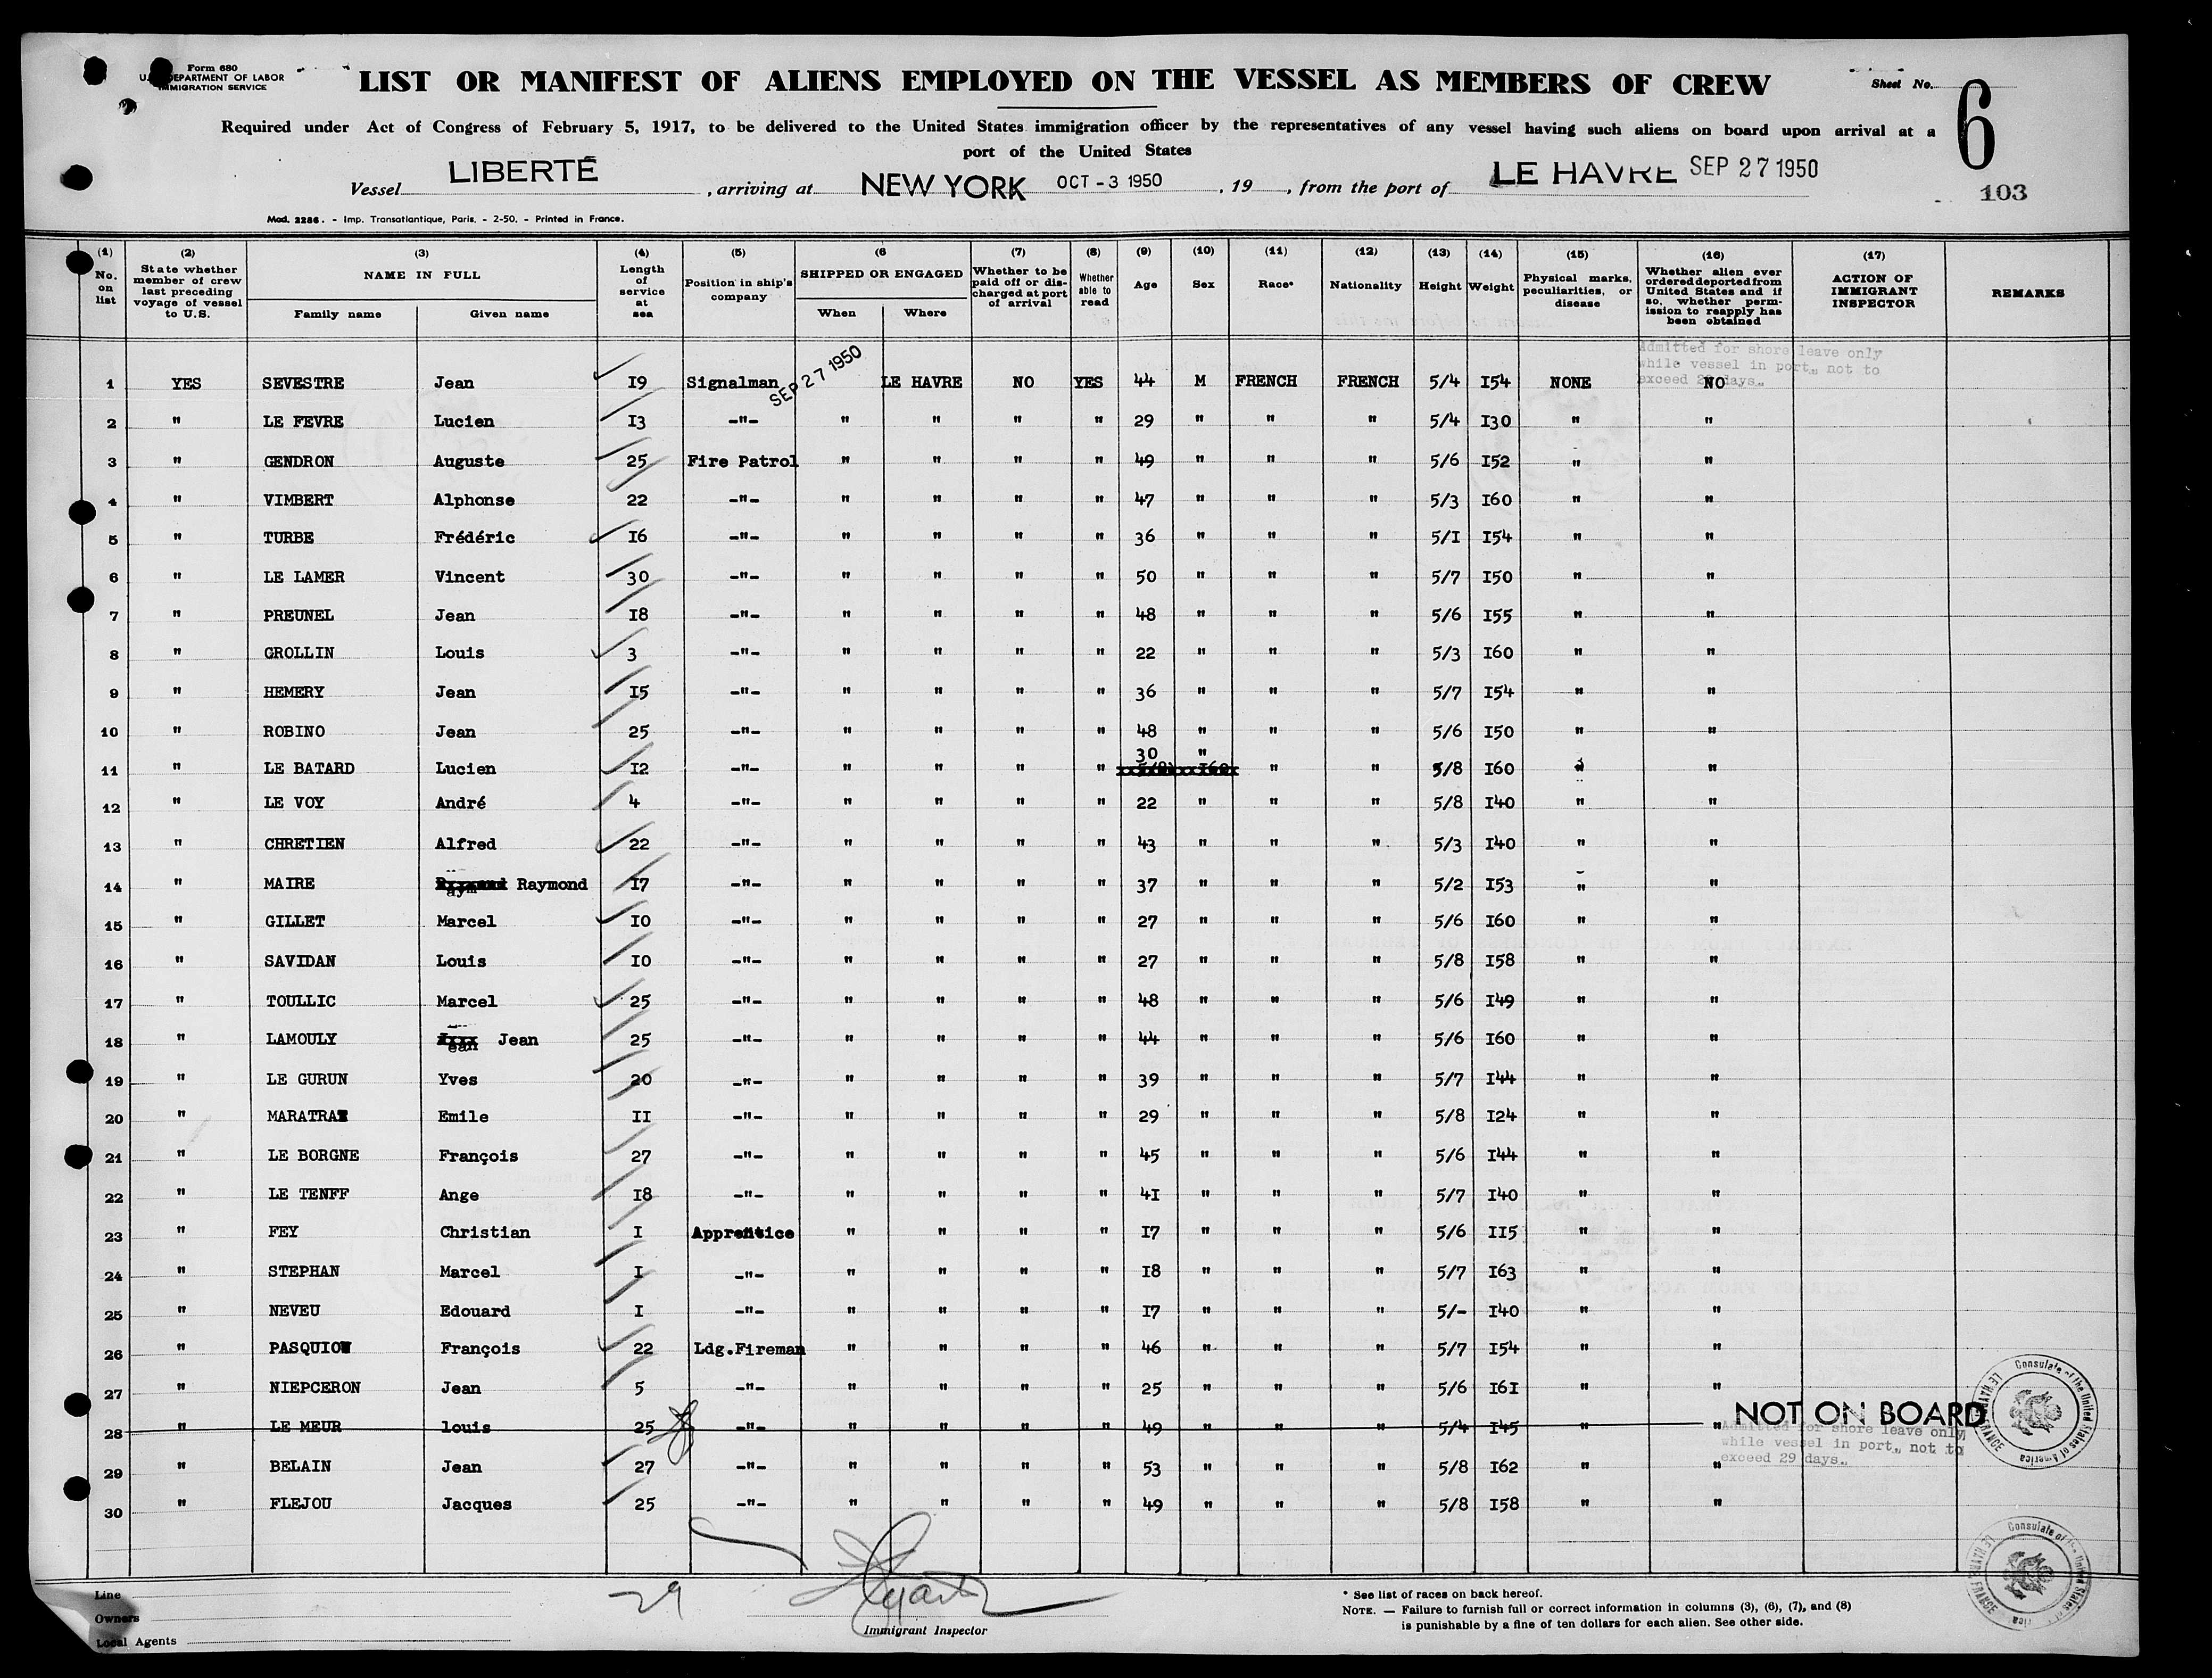 Form 680
U.S. DEPARTMENT OF LABOR
IMMIGRATION SERVICE
LIST OR MANIFEST OF ALIENS EMPLOYED ON THE VESSEL AS MEMBERS OF CREW
Sheet No. 6
Required under Act of Congress of February 5, 1917, to be delivered to the United States immigration officer by the representatives of any vessel having such aliens on board upon arrival at a
port of the United States
Vessel LIBERTÉ , arriving at NEW YORK OCT -3 1950 , 19 , from the port of LE HAVRE SEP 27 1950
103
Mod. 2286. - Imp. Transatlantique, Paris. - 2-50. - Printed in France.
(1) No. on list (2) State whether member of crew last preceding voyage of vessel to U.S. (3) NAME IN FULL Family name Given name (4) Length of service at sea (5) Position in ship's company (6 SHIPPED OR ENGAGED When Where (7) Whether to be paid off or discharged at port of arrival (8) Whether able to read (9) Age (10) Sex (11) Race* (12) Nationality (13) Height (14) Weight (15) Physical marks, peculiarities, or disease (16) Whether alien ever ordered deported from United States and if so, whether permission to reapply has been obtained (17) ACTION OF IMMIGRANT INSPECTOR REMARKS
Admitted for shore leave only
while vessel in port, not to
exceed 29 days.
1 YES SEVESTRE Jean I9 Signalman SEP 27 1950 LE HAVRE NO YES 44 M FRENCH FRENCH 5/4 I54 NONE NO
2 " LE FEVRE Lucien I3 -"- " " " " 29 " " " 5/4 I30 " "
3 " GENDRON Auguste 25 Fire Patrol " " " " 49 " " " 5/6 I52 " "
4 " VIMBERT Alphonse 22 -"- " " " " 47 " " " 5/3 I60 " "
5 " TURBE Frédéric I6 -"- " " " " 36 " " " 5/I I54 " "
6 " LE LAMER Vincent 30 -"- " " " " 50 " " " 5/7 I50 " "
7 " PREUNEL Jean I8 -"- " " " " 48 " " " 5/6 I55 " "
8 " GROLLIN Louis 3 -"- " " " " 22 " " " 5/3 I60 " "
9 " HEMERY Jean I5 -"- " " " " 36 " " " 5/7 I54 " "
10 " ROBINO Jean 25 -"- " " " " 48 " " " 5/6 I50 " "
11 " LE BATARD Lucien I2 -"- " " " " 30 " " " 5/8 I60 " "
12 " LE VOY André 4 -"- " " " " 22 " " " 5/8 I40 " "
13 " CHRETIEN Alfred 22 -"- " " " " 43 " " " 5/3 I40 " "
14 " MAIRE Raymond I7 -"- " " " " 37 " " " 5/2 I53 " "
15 " GILLET Marcel I0 -"- " " " " 27 " " " 5/6 I60 " "
16 " SAVIDAN Louis I0 -"- " " " " 27 " " " 5/8 I58 " "
17 " TOULLIC Marcel 25 -"- " " " " 48 " " " 5/6 I49 " "
18 " LAMOULY Jean 25 -"- " " " " 44 " " " 5/6 I60 " "
19 " LE GURUN Yves 20 -"- " " " " 39 " " " 5/7 I44 " "
20 " MARATRAT Emile II -"- " " " " 29 " " " 5/8 I24 " "
21 " LE BORGNE François 27 -"- " " " " 45 " " " 5/6 I44 " "
22 " LE TENFF Ange I8 -"- " " " " 4I " " " 5/7 I40 " "
23 " FEY Christian I Apprentice " " " " I7 " " " 5/6 II5 " "
24 " STEPHAN Marcel I -"- " " " " I8 " " " 5/7 I63 " "
25 " NEVEU Edouard I -"- " " " " I7 " " " 5/- I40 " "
26 " PASQUIOW François 22 Ldg.Fireman " " " " 46 " " " 5/7 I54 " "
27 " NIEPCERON Jean 5 -"- " " " " 25 " " " 5/6 I6I " "
28 " LE MEUR louis 25 -"- " " " " 49 " " " 5/4 I45 " " NOT ON BOARD
Admitted for shore leave only
while vessel in port, not to
exceed 29 days.
29 " BELAIN Jean 27 -"- " " " " 53 " " " 5/8 I62 " "
30 " FLEJOU Jacques 25 -"- " " " " 49 " " " 5/8 I58 " "
Consulate of the United States of America
LE HAVRE, FRANCE
Consulate of the United States of America
LE HAVRE, FRANCE
29
Line
Owners
Local Agents
Immigrant Inspector
* See list of races on back hereof.
NOTE. — Failure to furnish full or correct information in columns (3), (6), (7), and (8)
is punishable by a fine of ten dollars for each alien. See other side.